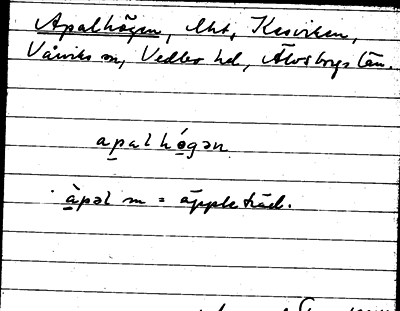 Apalhögen, lht, Kesviken,
Vårviks sn, Vedbo hd, Älvsborgs län.
apalhógən
àpəl m = äppleträd.